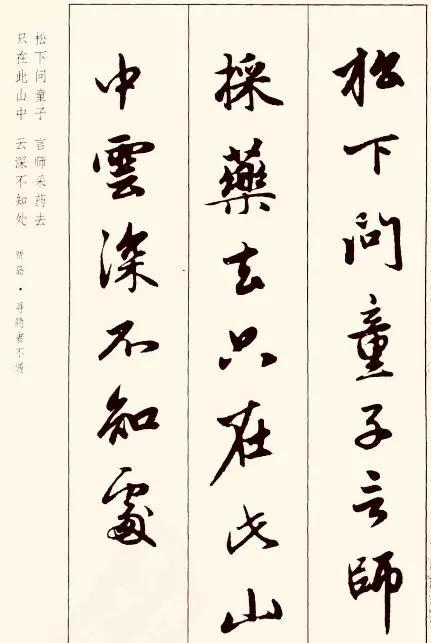 松下问童子言師
採藥去只在此山
中雲深不知處
松下问童子 言师采药去
只在此山中 云深不知处
贾岛·寻隐者不遇